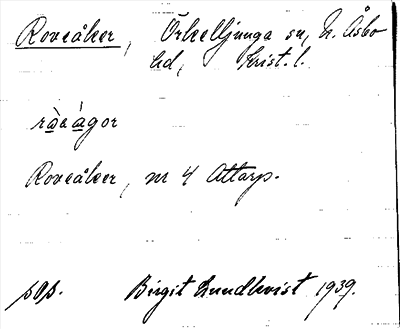 Roveåker, Örkelljunga sn, N. Åsbo
hd, Krist. l.
Roveåker, nr 4 Attarp.
sOp. Birgit Lundkvist 1939.